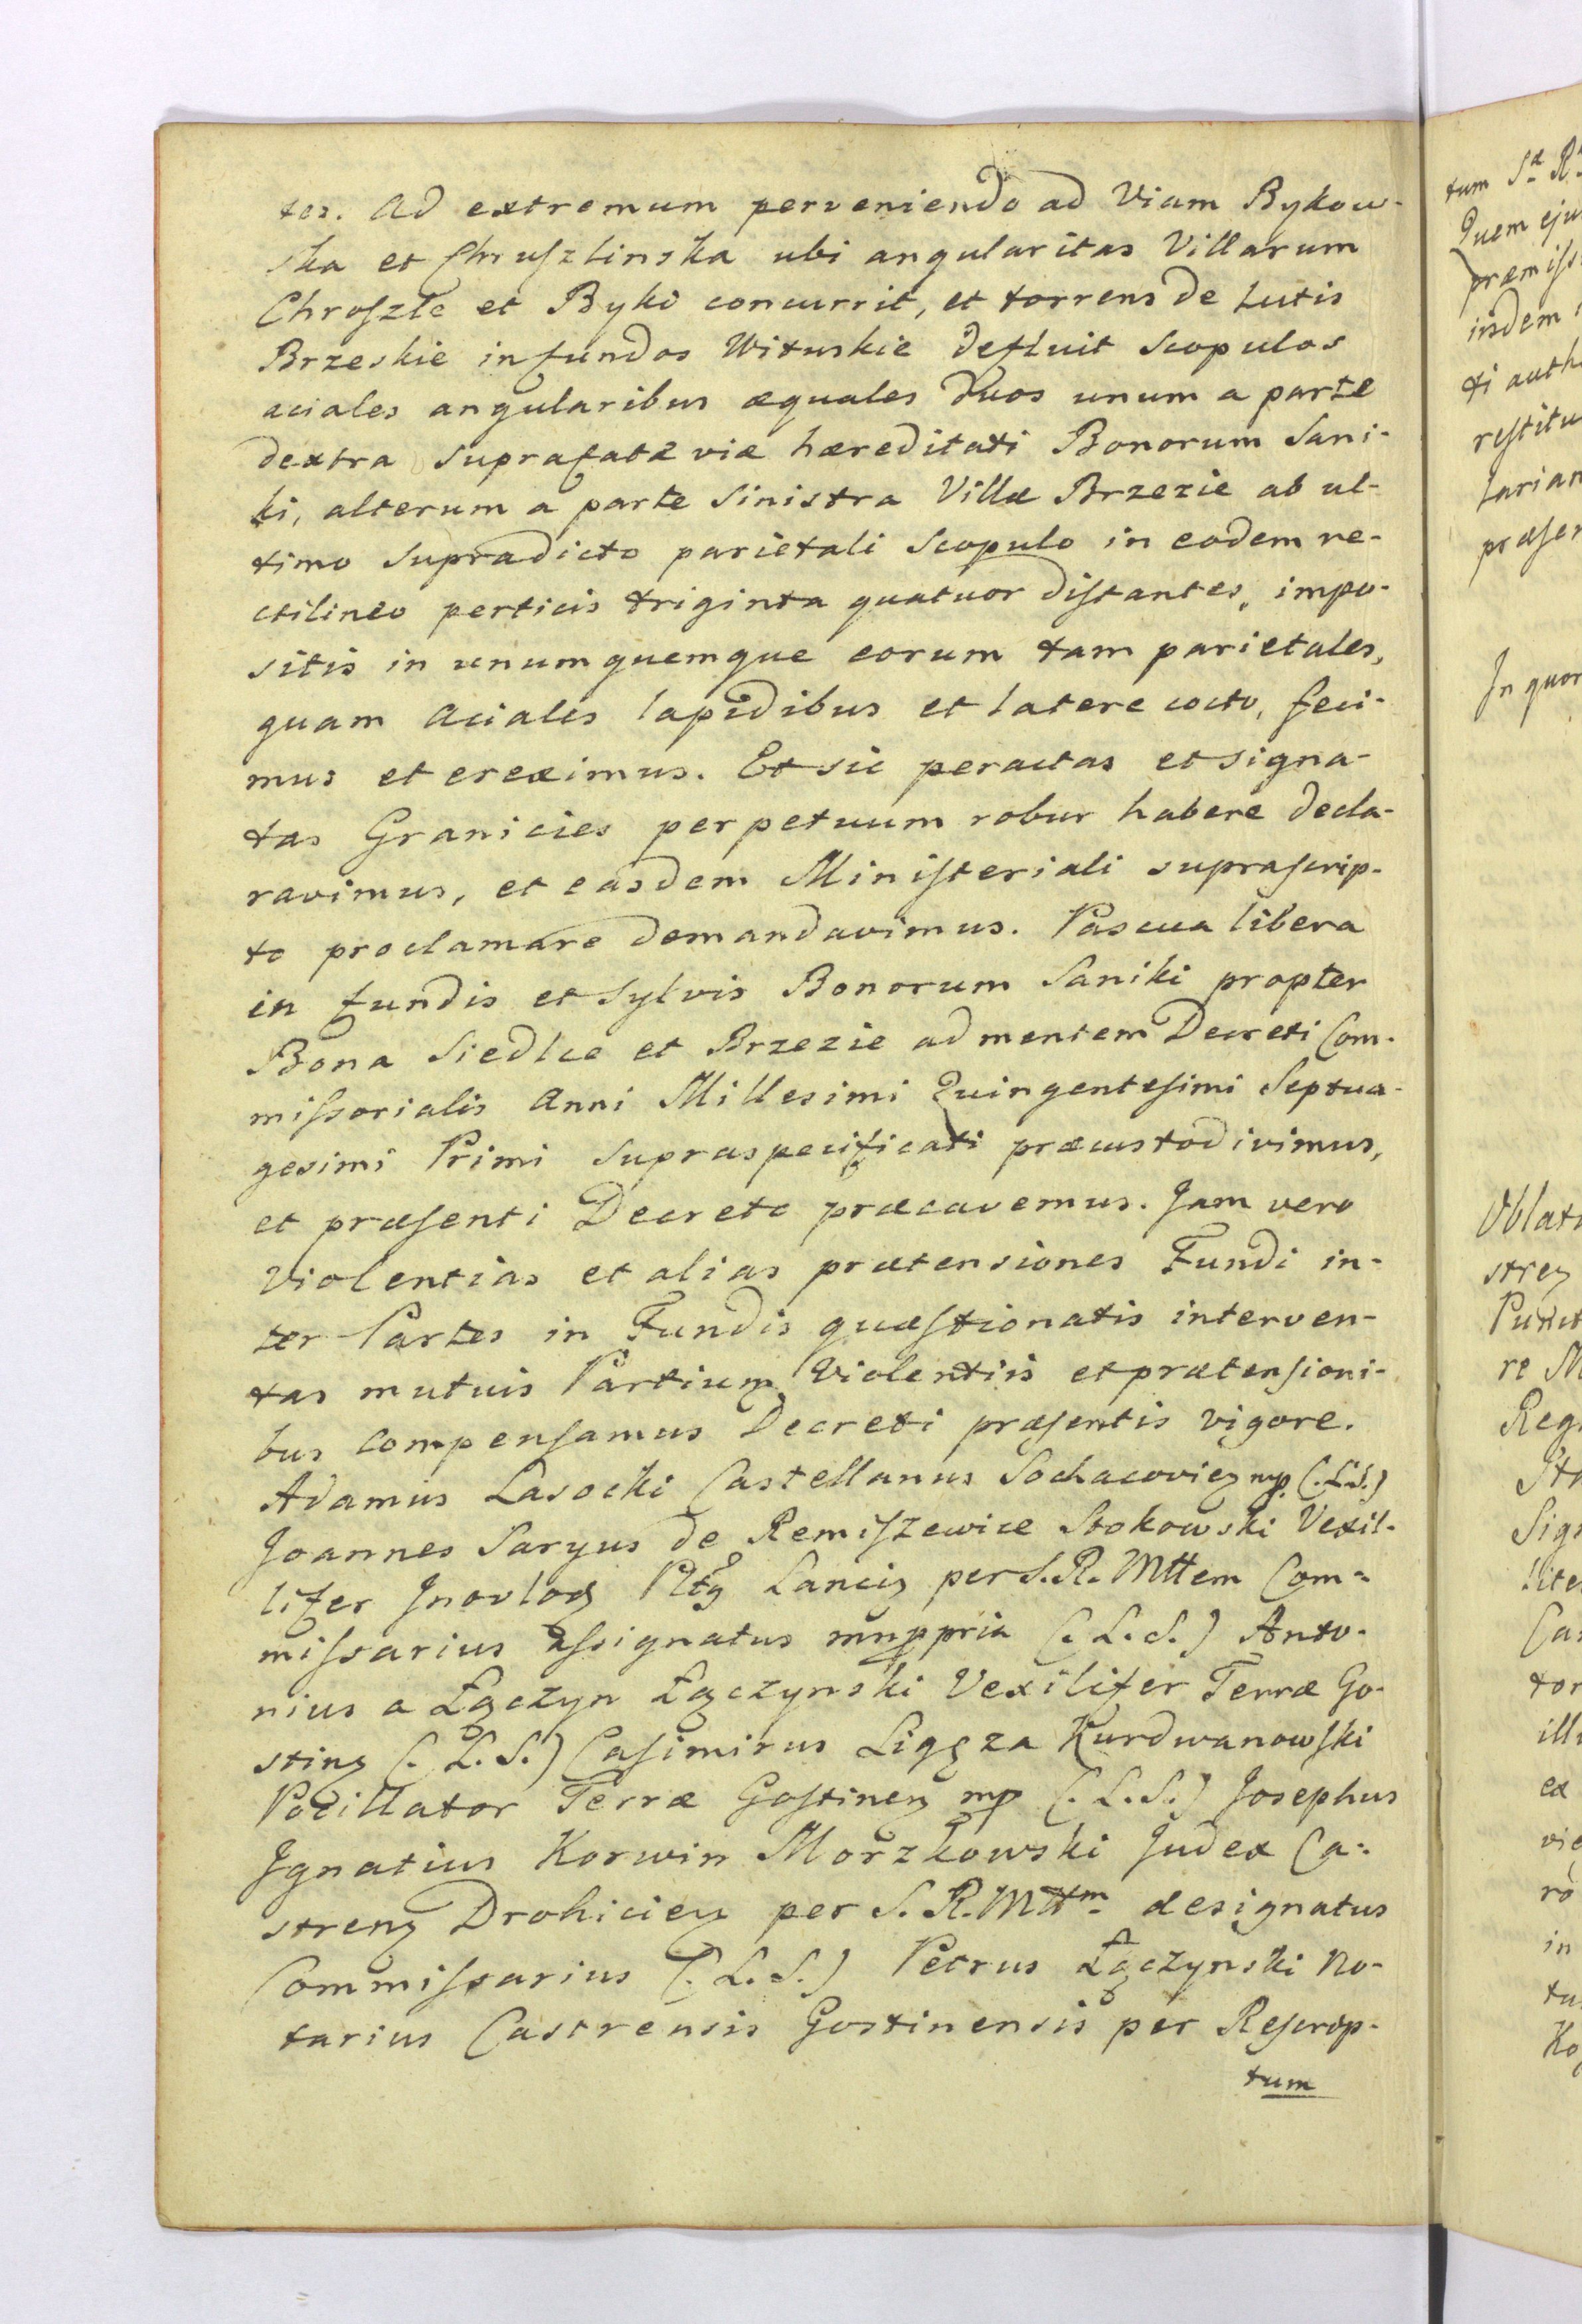 tes. Ad extremum perveniendo ad Viam Bykow-
ska et Chruszlinska ubi angularitas Villarum
Chroszle et Byki concurrit, et torrens de Lutis
Brzeskie in fundos Wituskie defluit Scopulos
aciales angularibus æquales duos unum a parte
dextra suprafatæ viæ hæreditati Bonorum Sani-
ki, alterum a parte Sinistra Villæ Brzezie ab ul-
timo supradicto parietali Scopulo in eodem re-
ctilineo perticis triginta quatuor distantes, impo-
sitis in unumquemque eorum tam parietales,
quam aciales lapidibus et latere cocto, feci-
mus et ereximus. Et sic peractas et signa-
tas Granicies perpetuum robur habere decla-
ravimus, et easdem Ministeriali suprascrip-
to proclamare demandavimus. Pascua libera
in fundis et Sylvis Bonorum Saniki propter
Bona Siedlce et Brzezie ad mentem Decreti Com-
missorialis Anni Millesimi Quingentesimi Septua-
gesimi Primi supraspecificati præcustodivimus,
et præsenti Decreto præcavemus. Jam vero
Violentias et alias prætensiones Fundi in-
ter Partes in Fundis quæstionatis interven-
tas mutuis Partium Violentiis et prætensioni-
bus compensamus Decreti præsentis vigore.
Adamus Lasocki Castellanus Sochacovien mp. (.L.S.)
Joannes Saryus de Remiszewice Stokowski Vexil-
lifer Jnovlod Lanciz per S. R. Mttem Com-
missarius assignatus mnppria (. L. S.) Anto-
nius a Łączyn Łączynski Vexilifer Terræ Go-
stinen (. L. S.) Casimirus Ligęza Kurdwanowski
Pocillator Terræ Gostinen mp (. L. S.) Josephus
Jgnatius Korwin Morzkowski Judex Ca-
stren Drohicien per S. R. Mttm designatus
Commissarius (. L. S.) Petrus Łączynski No-
tarius Castrensis Gostinensis per Rescrip-
tum
tum Sæ R
Quem eju
præmiss
iisdem
ti auth
restitu
larian
præsen
In quor
Oblat
stren
re M
Reg
Sig
lite
Ca
tor
ill
ex
vie
ro
in
tu
Ko